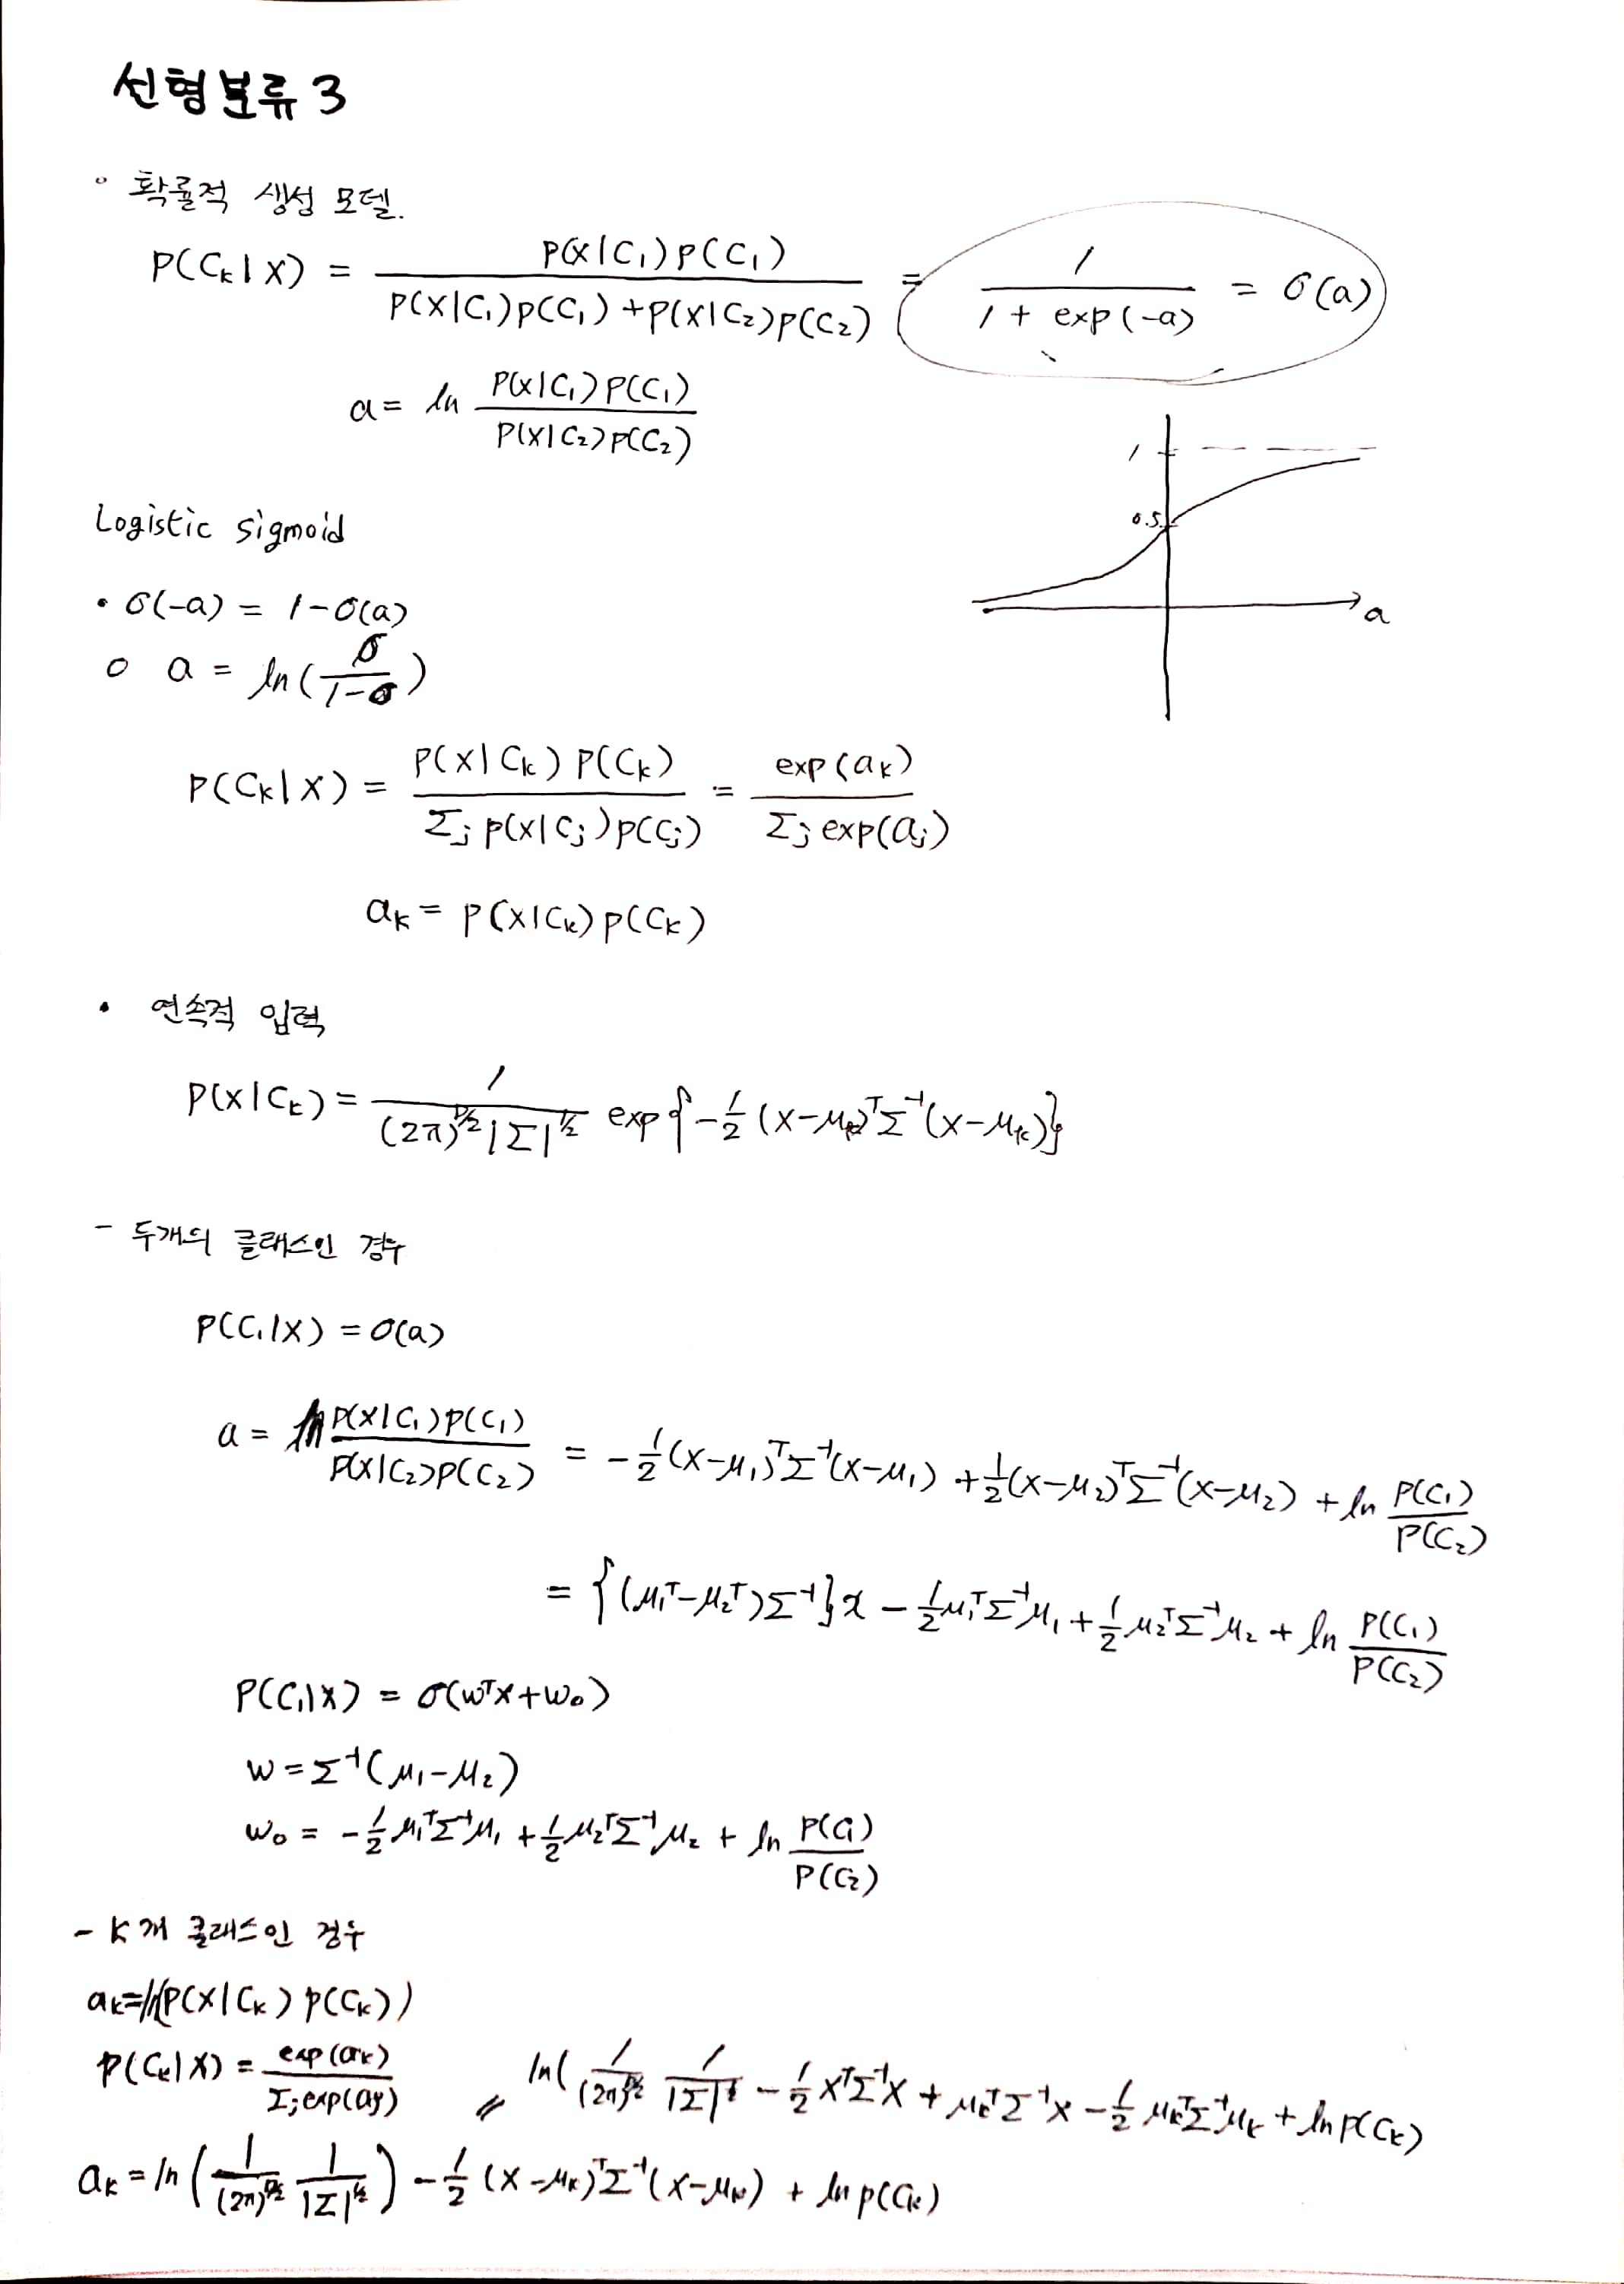 선형분류 3
◦ 확률적 생성 모델.
P(Cₖ|x) = P(x|C₁)p(C₁) / P(x|C₁)p(C₁)+p(x|C₂)p(C₂) = 1 / 1 + exp(-a) = σ(a)
a = ln P(x|C₁)P(C₁) / P(x|C₂)p(C₂)
1
0.5
a
Logistic sigmoid
• σ(-a) = 1-σ(a)
o a = ln(σ / 1-σ)
P(Cₖ|x) = P(x|Cₖ) P(Cₖ) / Σⱼ p(x|Cⱼ)p(Cⱼ) = exp(aₖ) / Σⱼ exp(aⱼ)
aₖ = p(x|Cₖ)p(Cₖ)
• 연속적 입력
P(x|Cₖ) = 1 / (2π)^{D/2}|Σ|^{1/2} exp{-1/2 (x-μₖ)ᵀΣ⁻¹(x-μₖ)}
- 두개의 클래스인 경우
P(C₁|x) = σ(a)
a = ln P(x|C₁)p(C₁) / P(x|C₂)p(C₂) = -1/2(x-μ₁)ᵀΣ⁻¹(x-μ₁) +1/2(x-μ₂)ᵀΣ⁻¹(x-μ₂) + ln P(C₁) / P(C₂)
= {(μ₁ᵀ-μ₂ᵀ)Σ⁻¹}x - 1/2μ₁ᵀΣ⁻¹μ₁ + 1/2μ₂ᵀΣ⁻¹μ₂ + ln P(C₁) / P(C₂)
P(C₁|x) = σ(wᵀx+w₀)
w = Σ⁻¹(μ₁-μ₂)
w₀ = -1/2μ₁ᵀΣ⁻¹μ₁ +1/2μ₂ᵀΣ⁻¹μ₂ + ln P(C₁) / P(C₂)
- K개 클래스인 경우
aₖ=ln(P(x|Cₖ) p(Cₖ))
p(Cₖ|x) = exp(aₖ) / Σⱼexp(aⱼ)
〃 ln( 1/(2π)^{D/2} 1/|Σ|^{1/2} - 1/2 xᵀΣ⁻¹x + μₖᵀΣ⁻¹x - 1/2 μₖᵀΣ⁻¹μₖ + ln p(Cₖ)
aₖ = ln ( 1/(2π)^{D/2} 1/|Σ|^{1/2} ) - 1/2 (x-μₖ)ᵀΣ⁻¹(x-μₖ) + ln p(Cₖ)